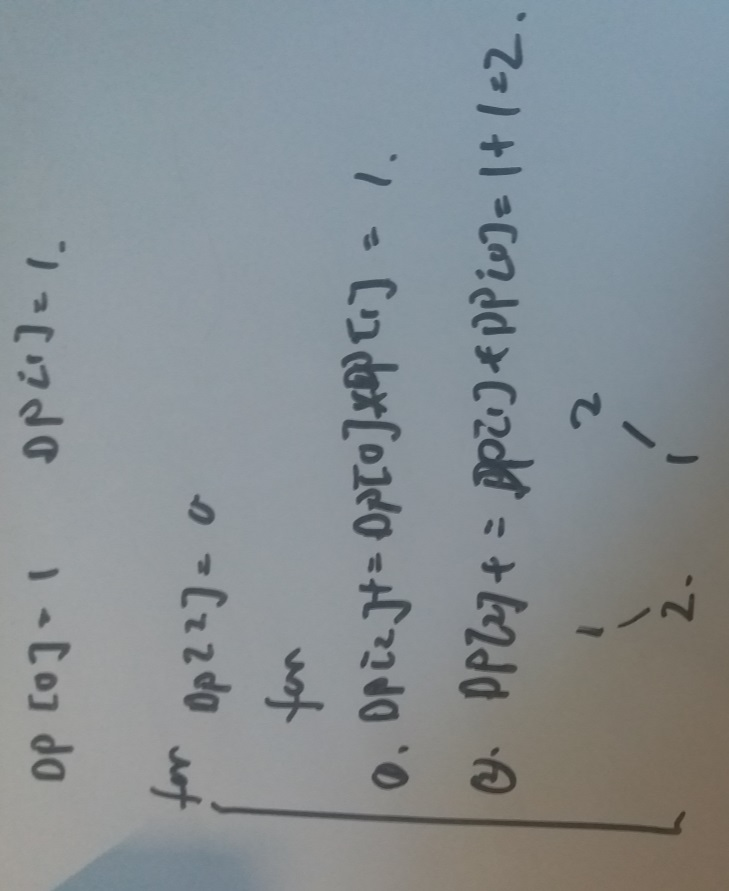 DP[0]=1 DP[1]=1.
for DP[2]=0
for
①. DP[2]+=DP[0]*DP[1] = 1.
②. DP[2]+=DP[1]*DP[0]=1+1=2.
1 2
\ /
2. 1